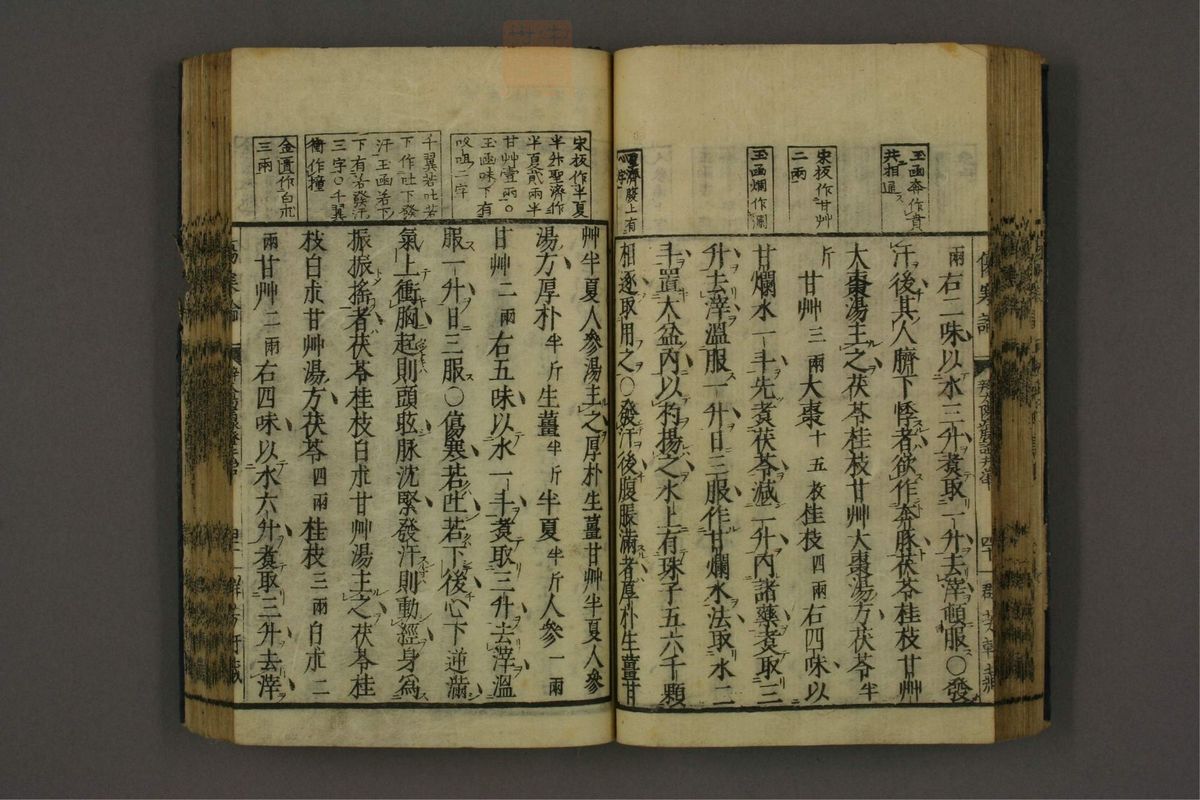 玉函奔作賁
共相通
宋板作甘艸
二兩
玉函爛作瀾
聖濟發上有
兩右二味以水三升煑取一升去滓頓服○發
汗後其人臍下悸者欲作奔豚茯苓桂枝甘艸
大棗湯主之茯苓桂枝甘艸大棗湯方茯苓半
斤甘艸三兩大棗十五枚桂枝四兩右四味以
甘爛水一斗先煑茯苓減二升內諸藥煑取三
升去滓溫服一升日三服作甘爛水法取水二
斗置大盆內以杓揚之水上有珠子五六千顆
相逐取用之○發汗後腹脹滿者厚朴生薑甘
宋板作半夏
半升聖濟作
半夏貳兩半
甘艸壹兩○
玉函味下有
㕮咀二字
千翼若吐若
下作吐下發
汗玉函若下
下有若發汗
三字○千翼
衝作撞
金匱作白朮
三兩
艸半夏人參湯主之厚朴生薑甘艸半夏人參
湯方厚朴半斤生薑半斤半夏半斤人參一兩
甘艸二兩右五味以水一斗煑取三升去滓溫
服一升日三服○傷寒若吐若下後心下逆滿
氣上衝胸起則頭眩脉沈緊發汗則動經身爲
振振搖者茯苓桂枝白朮甘艸湯主之茯苓桂
枝白朮甘艸湯方茯苓四兩桂枝三兩白朮二
兩甘艸二兩右四味以水六升煑取三升去滓
傷寒論